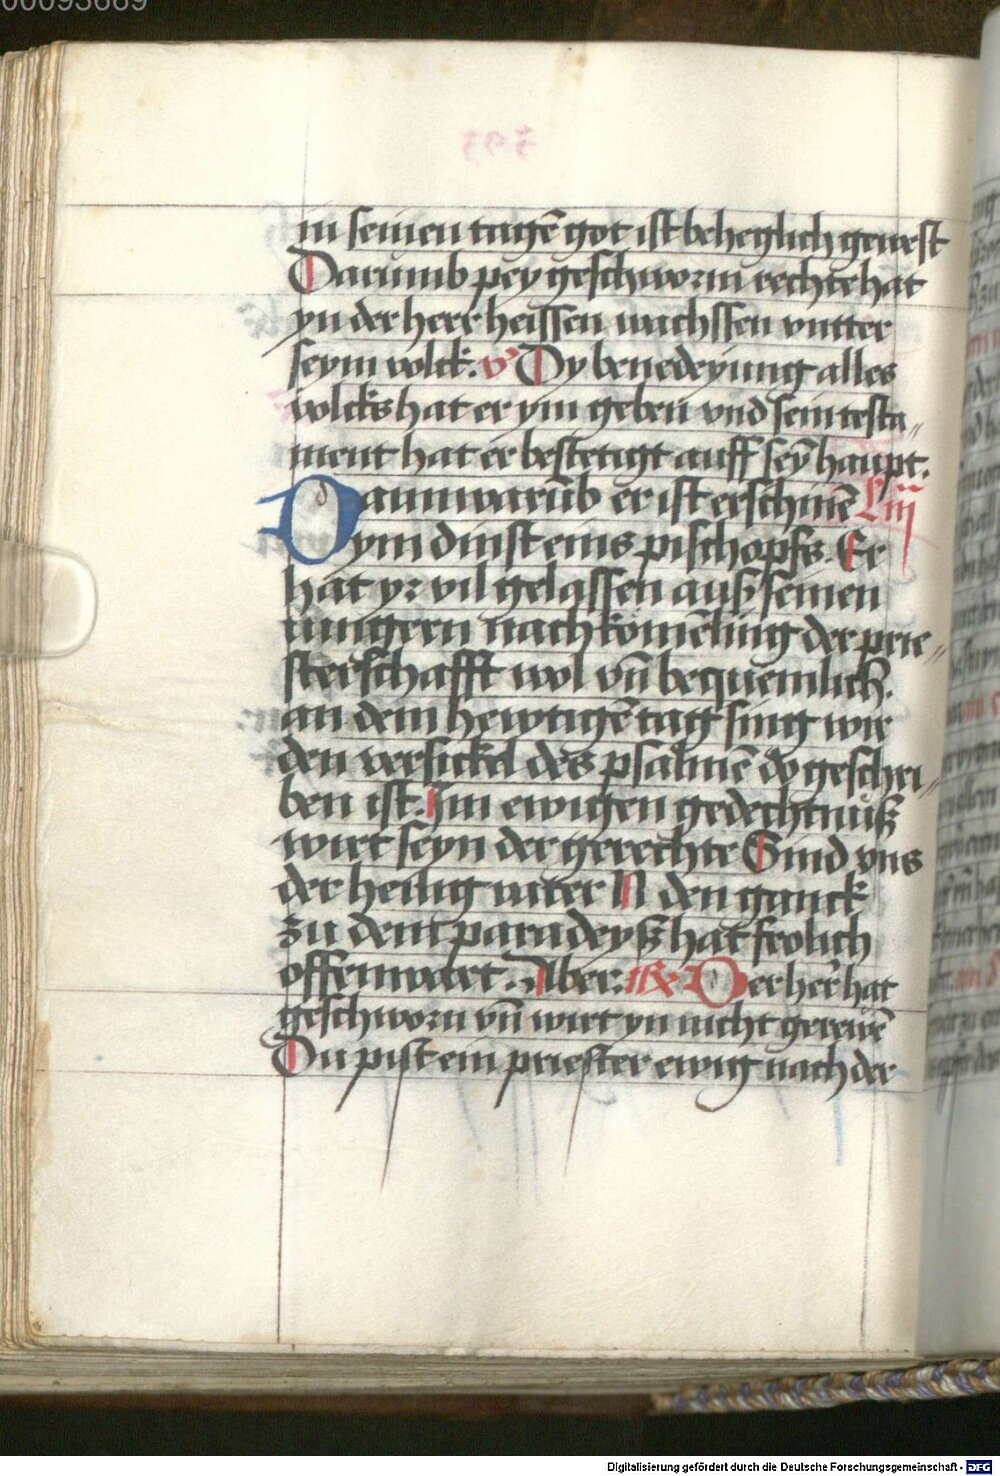 00093669
in seinen tagē got ist beheglich gewest
Darumb pey geschworm rechte hat
yn der herr heissen wachssen vntter
seym volck. v Dy benedeyung alles
volcks hat er ym geben vnd sein testa„
ment hat er bestetigt auff sey̅ haupt.
Dann warūb er ist erschinē Liij
ym dinst eins pischopfs. Er
hat yr vil gelassen auß seinen
iungern nachkömeling der prie„
sterschafft wol vn̄ bequemlich.
an dem hewtigē tag sing wir
den versickel des psalmē do geschri„
ben ist. Im ewigen gedechtnuß
wirt seyn der gerechte Sind vns
der heilig vater N den ganck
zu dem paradeyß hat frolich
offenwart. Aber. Der herr hat
geschworn vn̄ wirt yn nicht gerewē
Du pist ein priester ewig nach der
Digitalisierung gefördert durch die Deutsche Forschungsgemeinschaft - DFG